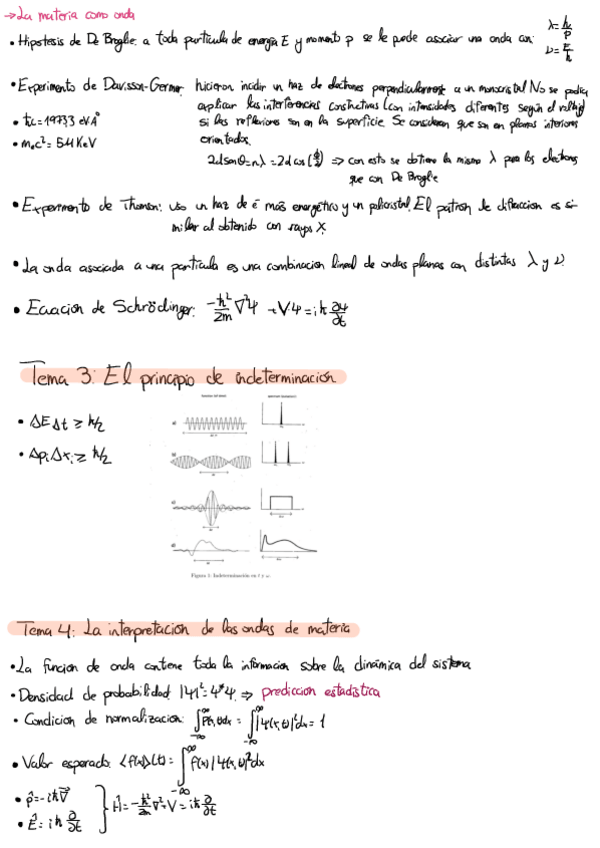 → La materia como onda
• Hipotesis de De Broglie: a toda particula de energia E y momento p se le puede asociar una onda con: λ = h/p
ν = E/h
• Experimento de Davisson-Germer hicieron incidir un haz de electrones perpendicularmente a un monocristal No se podia
explicar las interferencias constructivas (con intensidades diferentes según el voltaje)
• ħc = 1973,3 eV Å si las reflexiones son en la superficie. Se consideran que son en planos interiores
• mₑc² = 511 KeV orientados.
2d senθ = nλ = 2d cos(φ/2) ⇒ con esto se obtiene la misma λ para los electrones
que con De Broglie
• Experimento de Thomson: uso un haz de e⁻ más energético y un policristal. El patron de difraccion es si-
milar al obtenido con rayos X.
• La onda asociada a una partícula es una combinacion lineal de ondas planas con distintas λ y ν.
• Ecuacion de Schrödinger: -ħ²/2m ∇²Ψ + V·Ψ = iħ ∂Ψ/∂t
Tema 3: El principio de indeterminación
• ΔE Δt ≥ ħ/2
• Δpᵢ Δxᵢ ≥ ħ/2
a)
b)
c)
d)
Figura 3: Indeterminación en t y ω.
Tema 4: La interpretacion de las ondas de materia
• La funcion de onda contiene toda la informacion sobre la dinámica del sistema
• Densidad de probabilidad: |Ψ|² = Ψ*Ψ ⇒ prediccion estadistica
• Condicion de normalizacion: ∫_{-∞}^{∞} P(x,t)dx = ∫_{-∞}^{∞} |Ψ(x,t)|²dx = 1
• Valor esperado: ⟨f(x)⟩(t) = ∫_{-∞}^{∞} f(x) |Ψ(x,t)|²dx
• p̂ = -iħ∇⃗
• Ê = iħ ∂/∂t } Ĥ = -ħ²/2m ∇² + V = iħ ∂/∂t